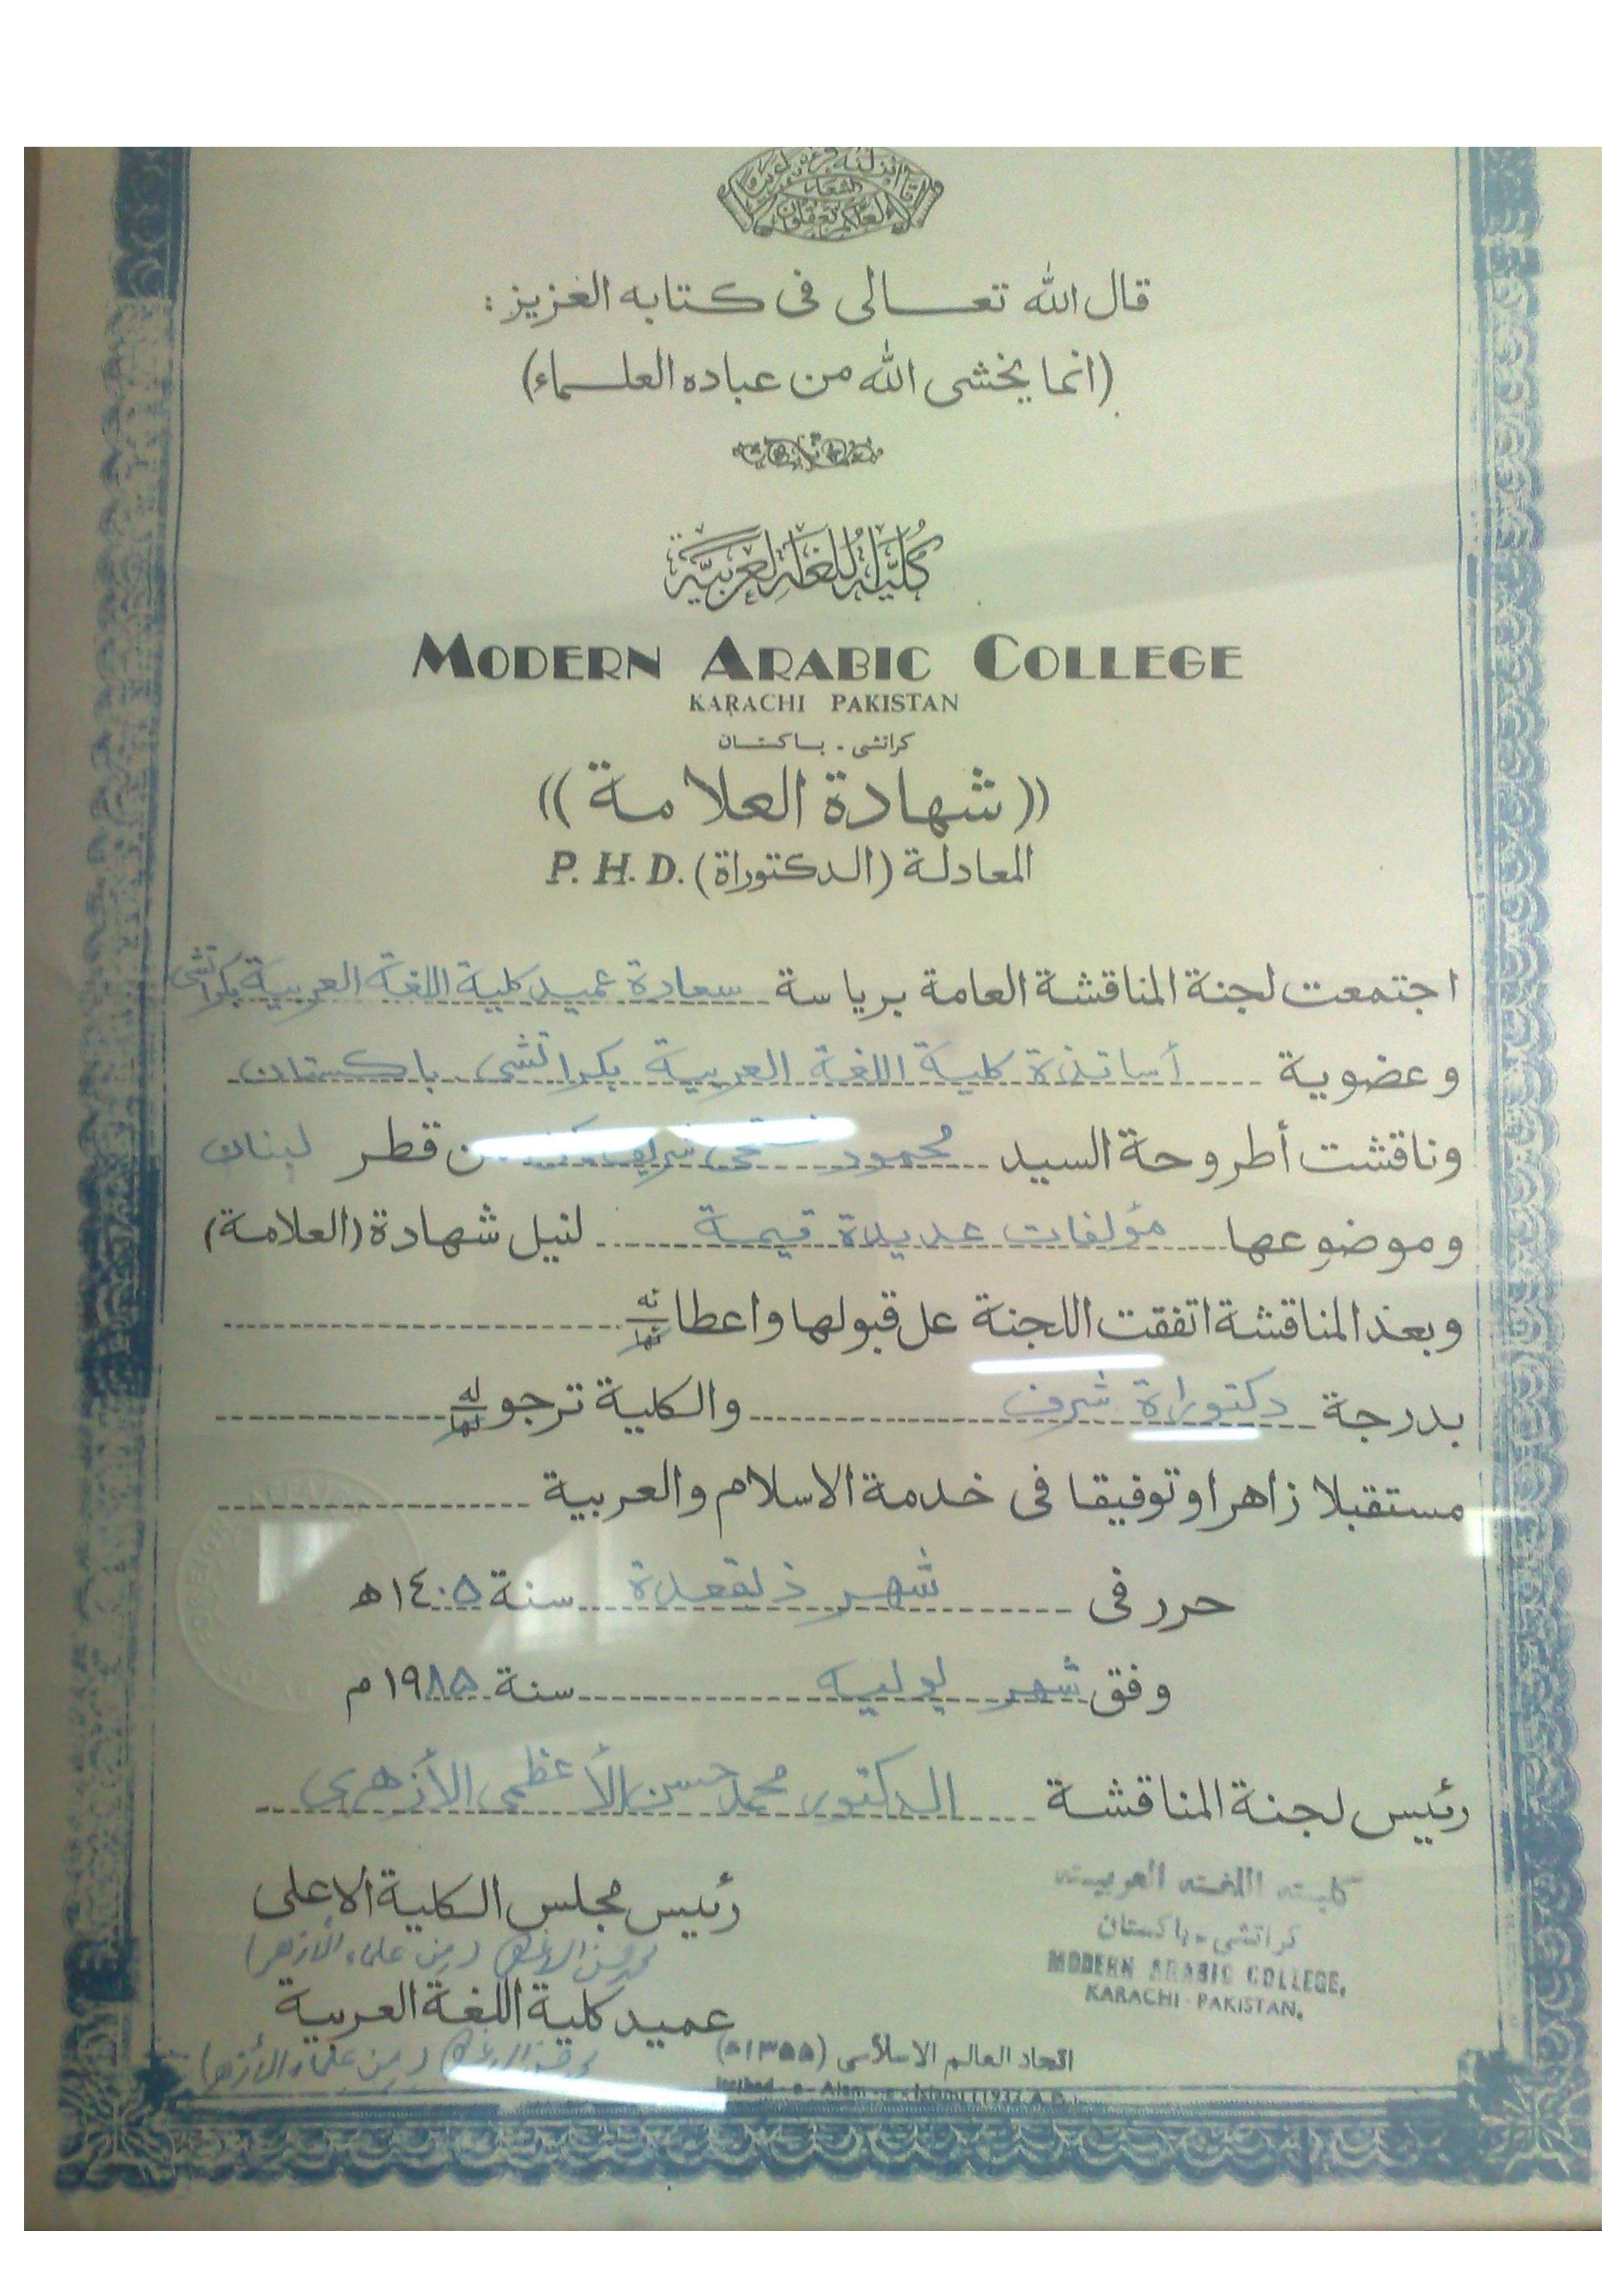 قال الله تعالى فى كتابه العزيز :
(انما يخشى الله من عباده العلماء)
كلية اللغة العربية
MODERN ARABIC COLLEGE
KARACHI PAKISTAN
كراتشى - باكستان
((شهادة العلامة))
المعادلة (الدكتوراة) P. H. D.
اجتمعت لجنة المناقشة العامة برياسة سعادة عميد كلية اللغة العربية بكراتشى
وعضوية أساتذة كلية اللغة العربية بكراتشى باكستان
وناقشت أطروحة السيد محمود قطر لبنان
وموضوعها مؤلفات عديدة قيمة لنيل شهادة (العلامة)
وبعذ المناقشة اتفقت اللجنة عل قبولها واعطا نه
بدرجة دكتوراة شرف والكلية ترجو له
مستقبلا زاهرا وتوفيقا فى خدمة الاسلام والعربية
حرر فى شهر ذلقعدة سنة ١٤٠٥ ه
وفق شهر يوليه سنة ١٩٨٥ م
رئيس لجنة المناقشة الدكتور محمد حسن الأعظمى الأزهرى
رئيس مجلس الكلية الاعلى
(من علماء الأزهر)
عميد كلية اللغة العربية
(من علماء الأزهر)
كليته اللغته العربيته
كراتشي - باكستان
MODERN ARABIC COLLEGE,
KARACHI - PAKISTAN.
اتحاد العالم الاسلامى (١٣٥٥ه)